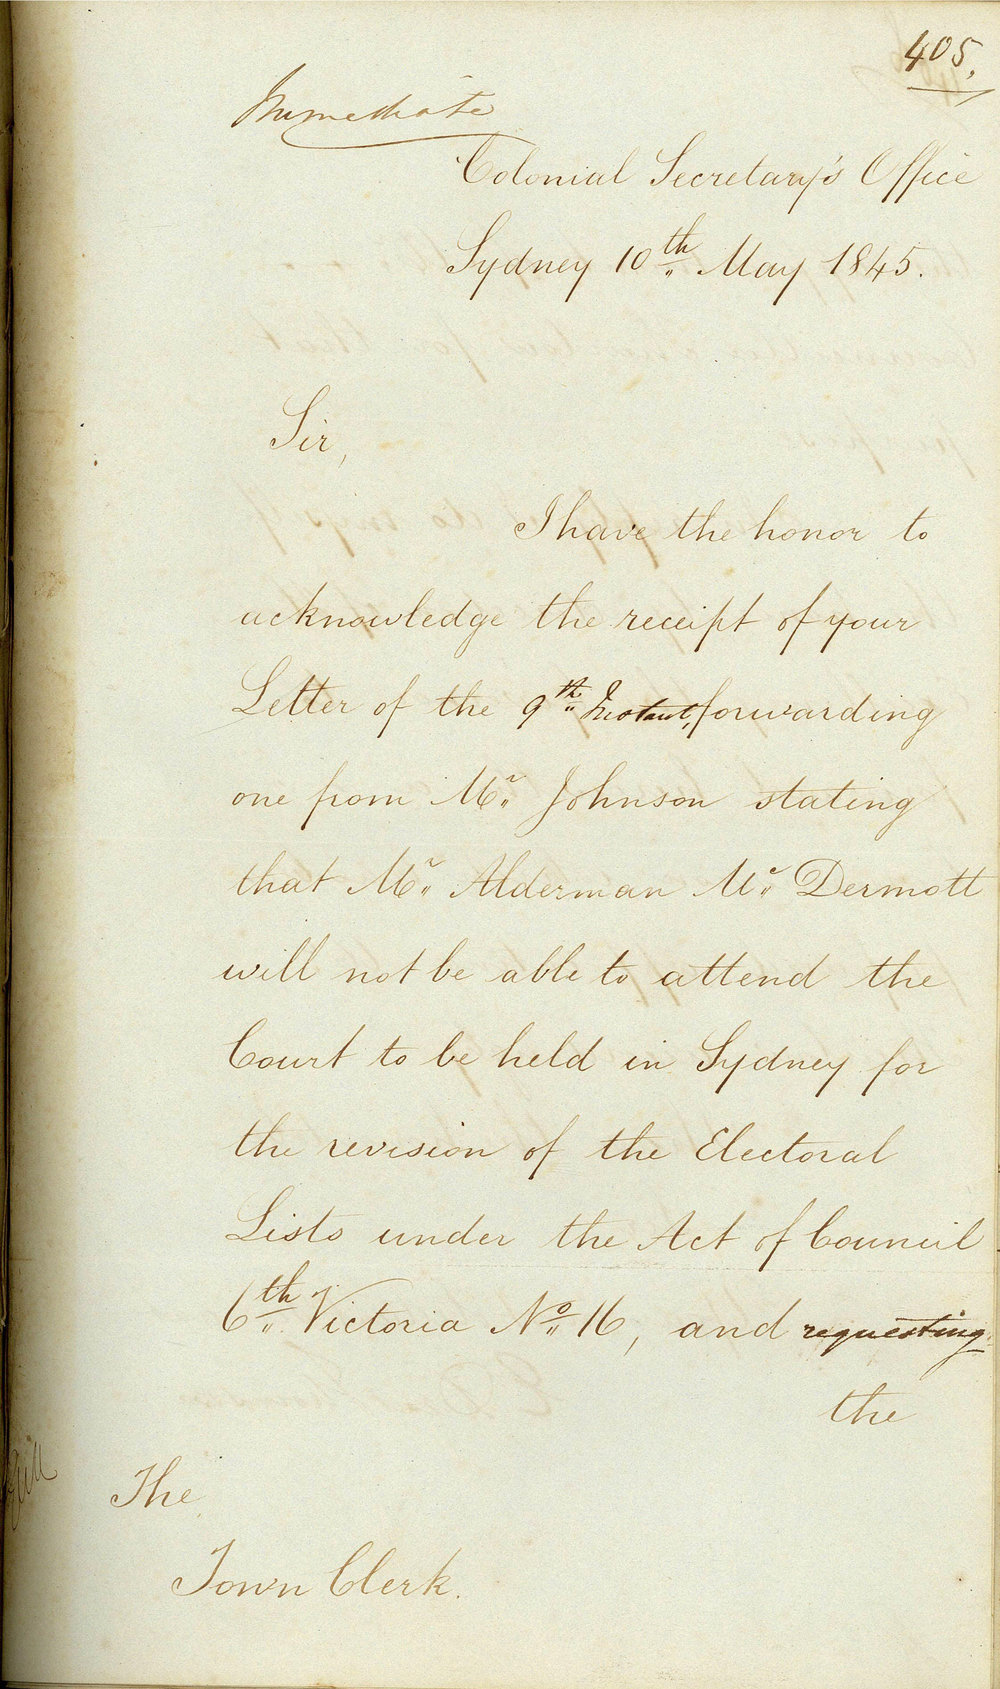 405.
Immediate
Colonial Secretary's Office
Sydney 10th May 1845.
Sir,
I have the honor to
acknowledge the receipt of your
Letter of the 9th Instant, forwarding
one from Mr. Johnson stating
that Mr. Alderman Mc. Dermott
will not be able to attend the
Court to be held in Sydney for
the revision of the Electoral
Lists under the Act of Council
6th Victoria No. 16, and requesting
the
The
Town Clerk.